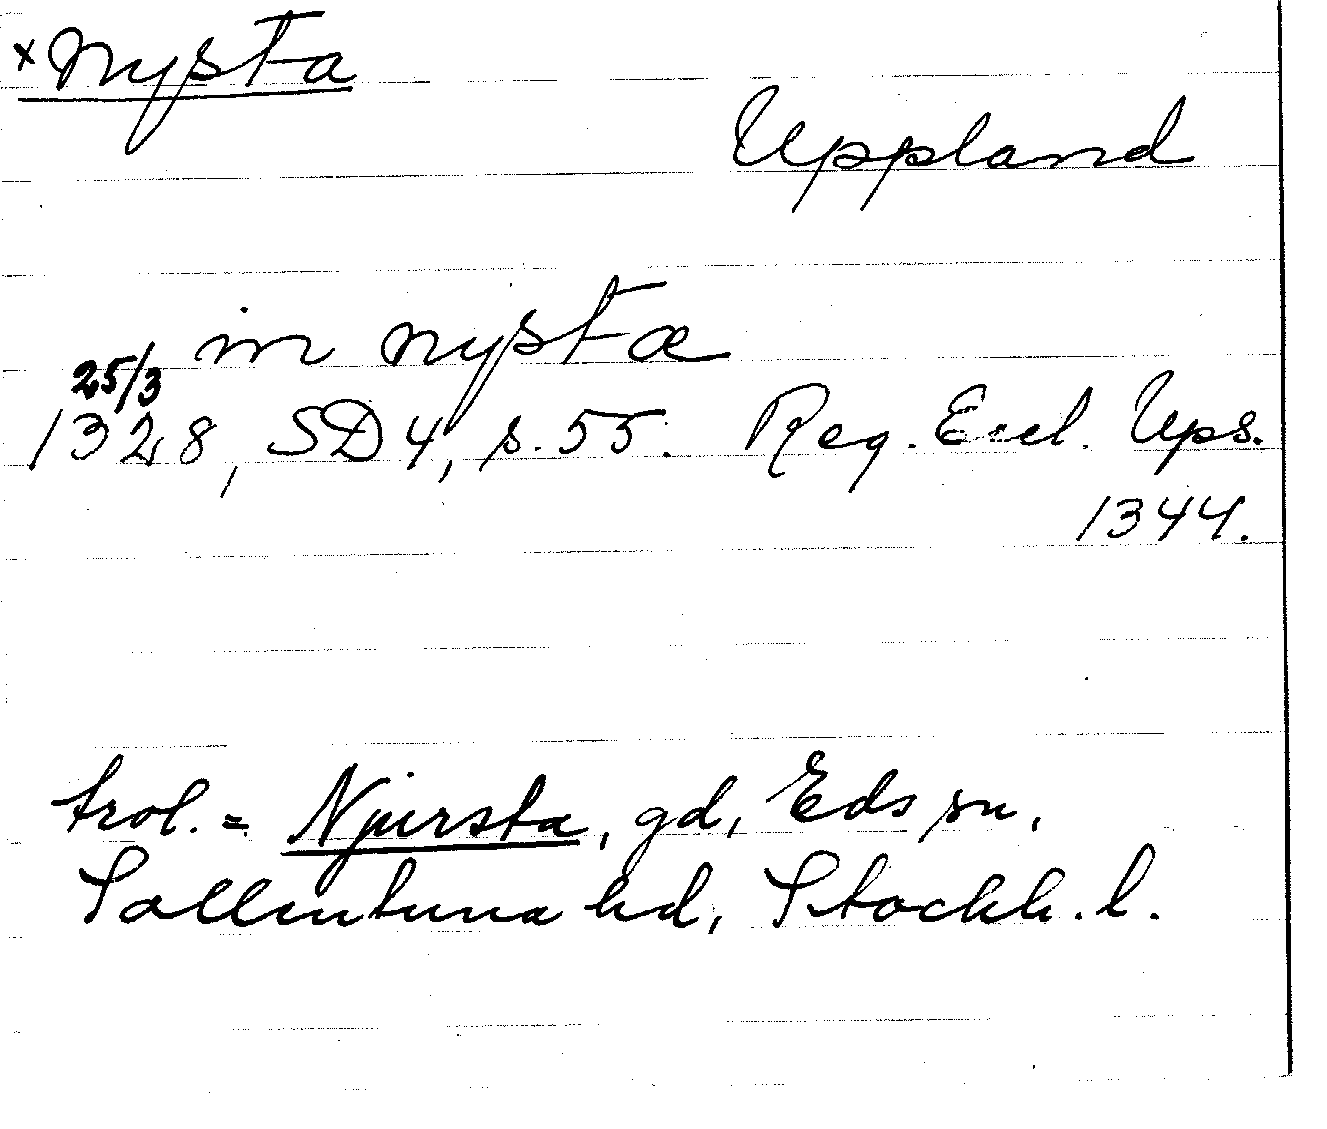 ×nysta
Uppland
in nysta
25/3
1328, SD 4, s. 55. Reg. Eccl. Ups.
1344.
trol. = Njursta, gd, Eds sn,
Sollentuna hd, Stockh. l.